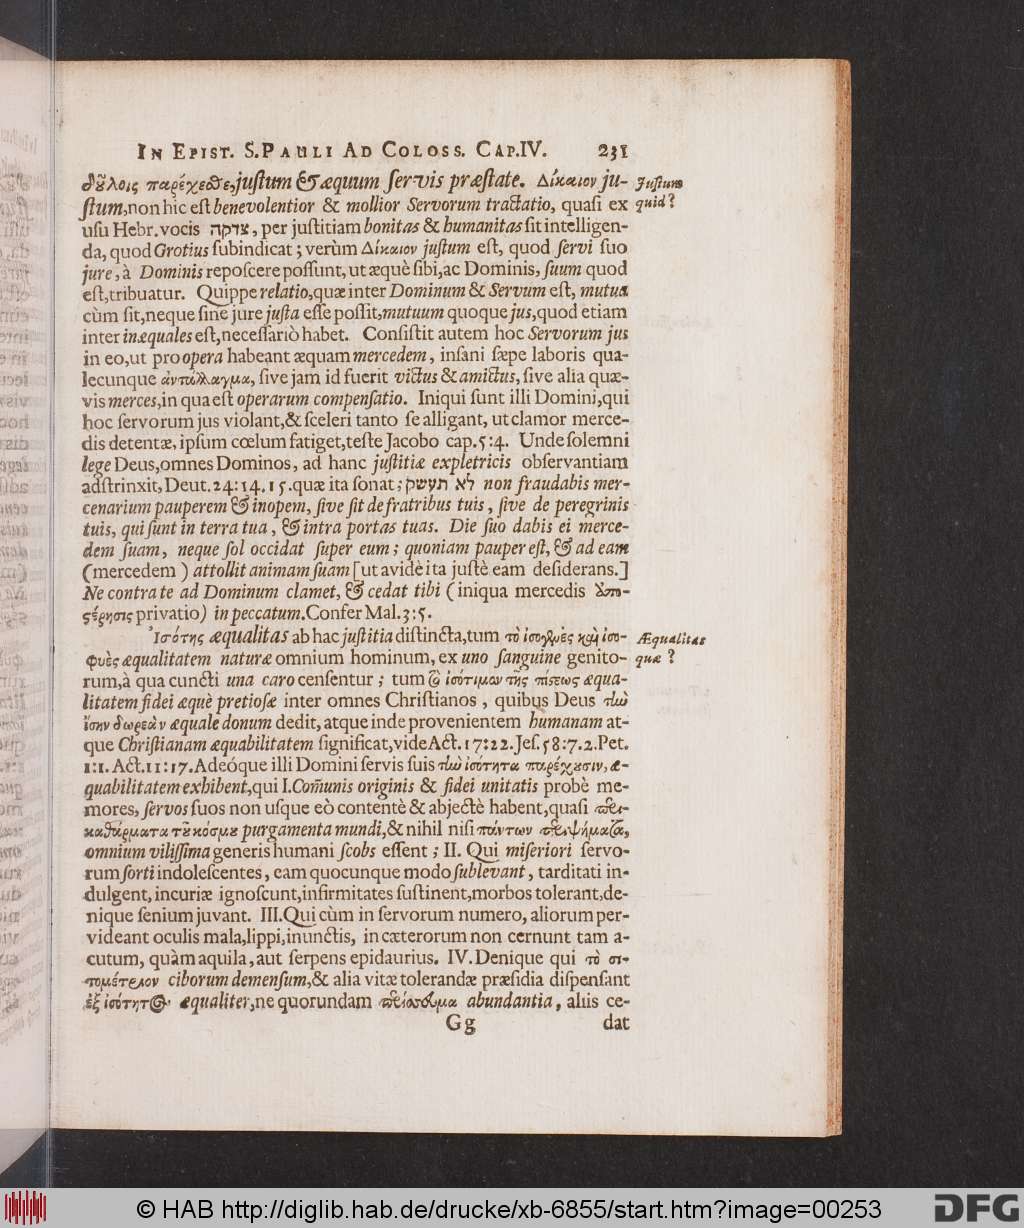 IN EPIST. S. PAULI AD COLOSS. CAP. IV. 231
δȣ́λοις παρέχεϑε, juſtum & æquum ſervis præſtate. Δίκαιον ju-
Juſtum
quid?
ſtum, non hic eſt benevolentior & mollior Servorum tractatio, quaſi ex
uſu Hebr. vocis צדקה, per juſtitiam bonitas & humanitas ſit intelligen-
da, quod Grotius ſubindicat; verùm Δίκαιον juſtum eſt, quod ſervi ſuo
jure, à Dominis repoſcere poſſunt, ut æquè ſibi, ac Dominis, ſuum quod
eſt, tribuatur. Quippe relatio, quæ inter Dominum & Servum eſt, mutua
cùm ſit, neque ſine jure juſta eſſe poſſit, mutuum quoque jus, quod etiam
inter inæquales eſt, neceſſariò habet. Conſiſtit autem hoc Servorum jus
in eo, ut pro opera habeant æquam mercedem, inſani ſæpe laboris qua-
lecunque ἀντάλλαγμα, ſive jam id fuerit victus & amictus, ſive alia quæ-
vis merces, in qua eſt operarum compenſatio. Iniqui ſunt illi Domini, qui
hoc ſervorum jus violant, & ſceleri tanto ſe alligant, ut clamor merce-
dis detentæ, ipſum cœlum fatiget, teſte Jacobo cap. 5:4. Unde ſolemni
lege Deus, omnes Dominos, ad hanc juſtitiæ expletricis obſervantiam
adſtrinxit, Deut. 24:14.15. quæ ita ſonat; לא תעשק non fraudabis mer-
cenarium pauperem & inopem, ſive ſit de fratribus tuis, ſive de peregrinis
tuis, qui ſunt in terra tua, & intra portas tuas. Die ſuo dabis ei merce-
dem ſuam, neque ſol occidat ſuper eum; quoniam pauper eſt, & ad eam
(mercedem) attollit animam ſuam [ut avidè ita juſtè eam deſiderans.]
Ne contra te ad Dominum clamet, & cedat tibi (iniqua mercedis ἀπο-
ςέρησις privatio) in peccatum. Confer Mal. 3:5.
Ἰσότης æqualitas ab hac juſtitia diſtincta, tum τὸ ἰσοφυὲς καὶ ἰσο-
Æqualitas
quæ?
φυὲς æqualitatem naturæ omnium hominum, ex uno ſanguine genito-
rum, à qua cuncti una caro cenſentur; tum τὸ ἰσότιμον τῆς πίστεως æqua-
litatem fidei æquè pretioſæ inter omnes Chriſtianos, quibus Deus τὴν
ἴσην δωρεὰν æquale donum dedit, atque inde provenientem humanam at-
que Chriſtianam æquabilitatem ſignificat, vide Act. 17:22. Jeſ. 58:7. 2. Pet.
1:1. Act. 11:17. Adeóque illi Domini ſervis ſuis τὴν ἰσότητα παρέχȣσιν, æ-
quabilitatem exhibent, qui I. Com̃unis originis & fidei unitatis probè me-
mores, ſervos ſuos non uſque eò contentè & abjectè habent, quaſi περι-
καθάρματα τȣ͂ κόσμȣ purgamenta mundi, & nihil niſi πάντων περιψήματα,
omnium viliſſima generis humani ſcobs eſſent; II. Qui miſeriori ſervo-
rum ſorti indoleſcentes, eam quocunque modo ſublevant, tarditati in-
dulgent, incuriæ ignoſcunt, infirmitates ſuſtinent, morbos tolerant, de-
nique ſenium juvant. III. Qui cùm in ſervorum numero, aliorum per-
videant oculis mala, lippi, inunctis, in cæterorum non cernunt tam a-
cutum, quàm aquila, aut ſerpens epidaurius. IV. Denique qui τὸ σι-
τομέτριον ciborum demenſum, & alia vitæ tolerandæ præſidia diſpenſant
ἐξ ἰσότητος æqualiter, ne quorundam περίσσευμα abundantia, aliis ce-
Gg dat
© HAB http://diglib.hab.de/drucke/xb-6855/start.htm?image=00253
DFG